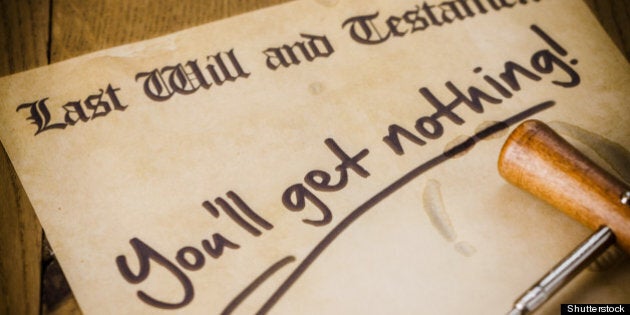 Last Will and Testament
You'll get nothing!
Shutterstock